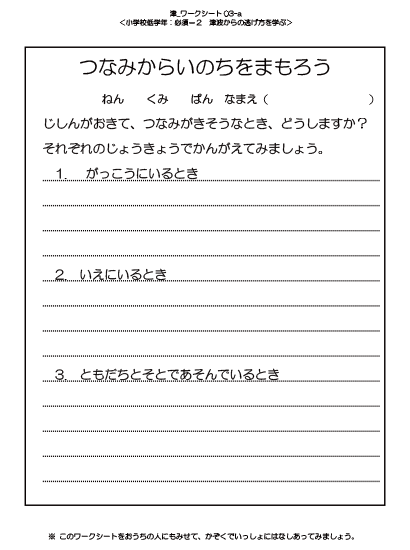 津_ワークシート03-a
＜小学校低学年：必須－２　津波からの逃げ方を学ぶ＞
つなみからいのちをまもろう
ねん　くみ　ばん　なまえ（　　　　　　　　）
じしんがおきて、つなみがきそうなとき、どうしますか？
それぞれのじょうきょうでかんがえてみましょう。
１．　がっこうにいるとき
２．　いえにいるとき
３．　ともだちとそとであそんでいるとき
※ このワークシートをおうちの人にもみせて、かぞくでいっしょにはなしあってみましょう。